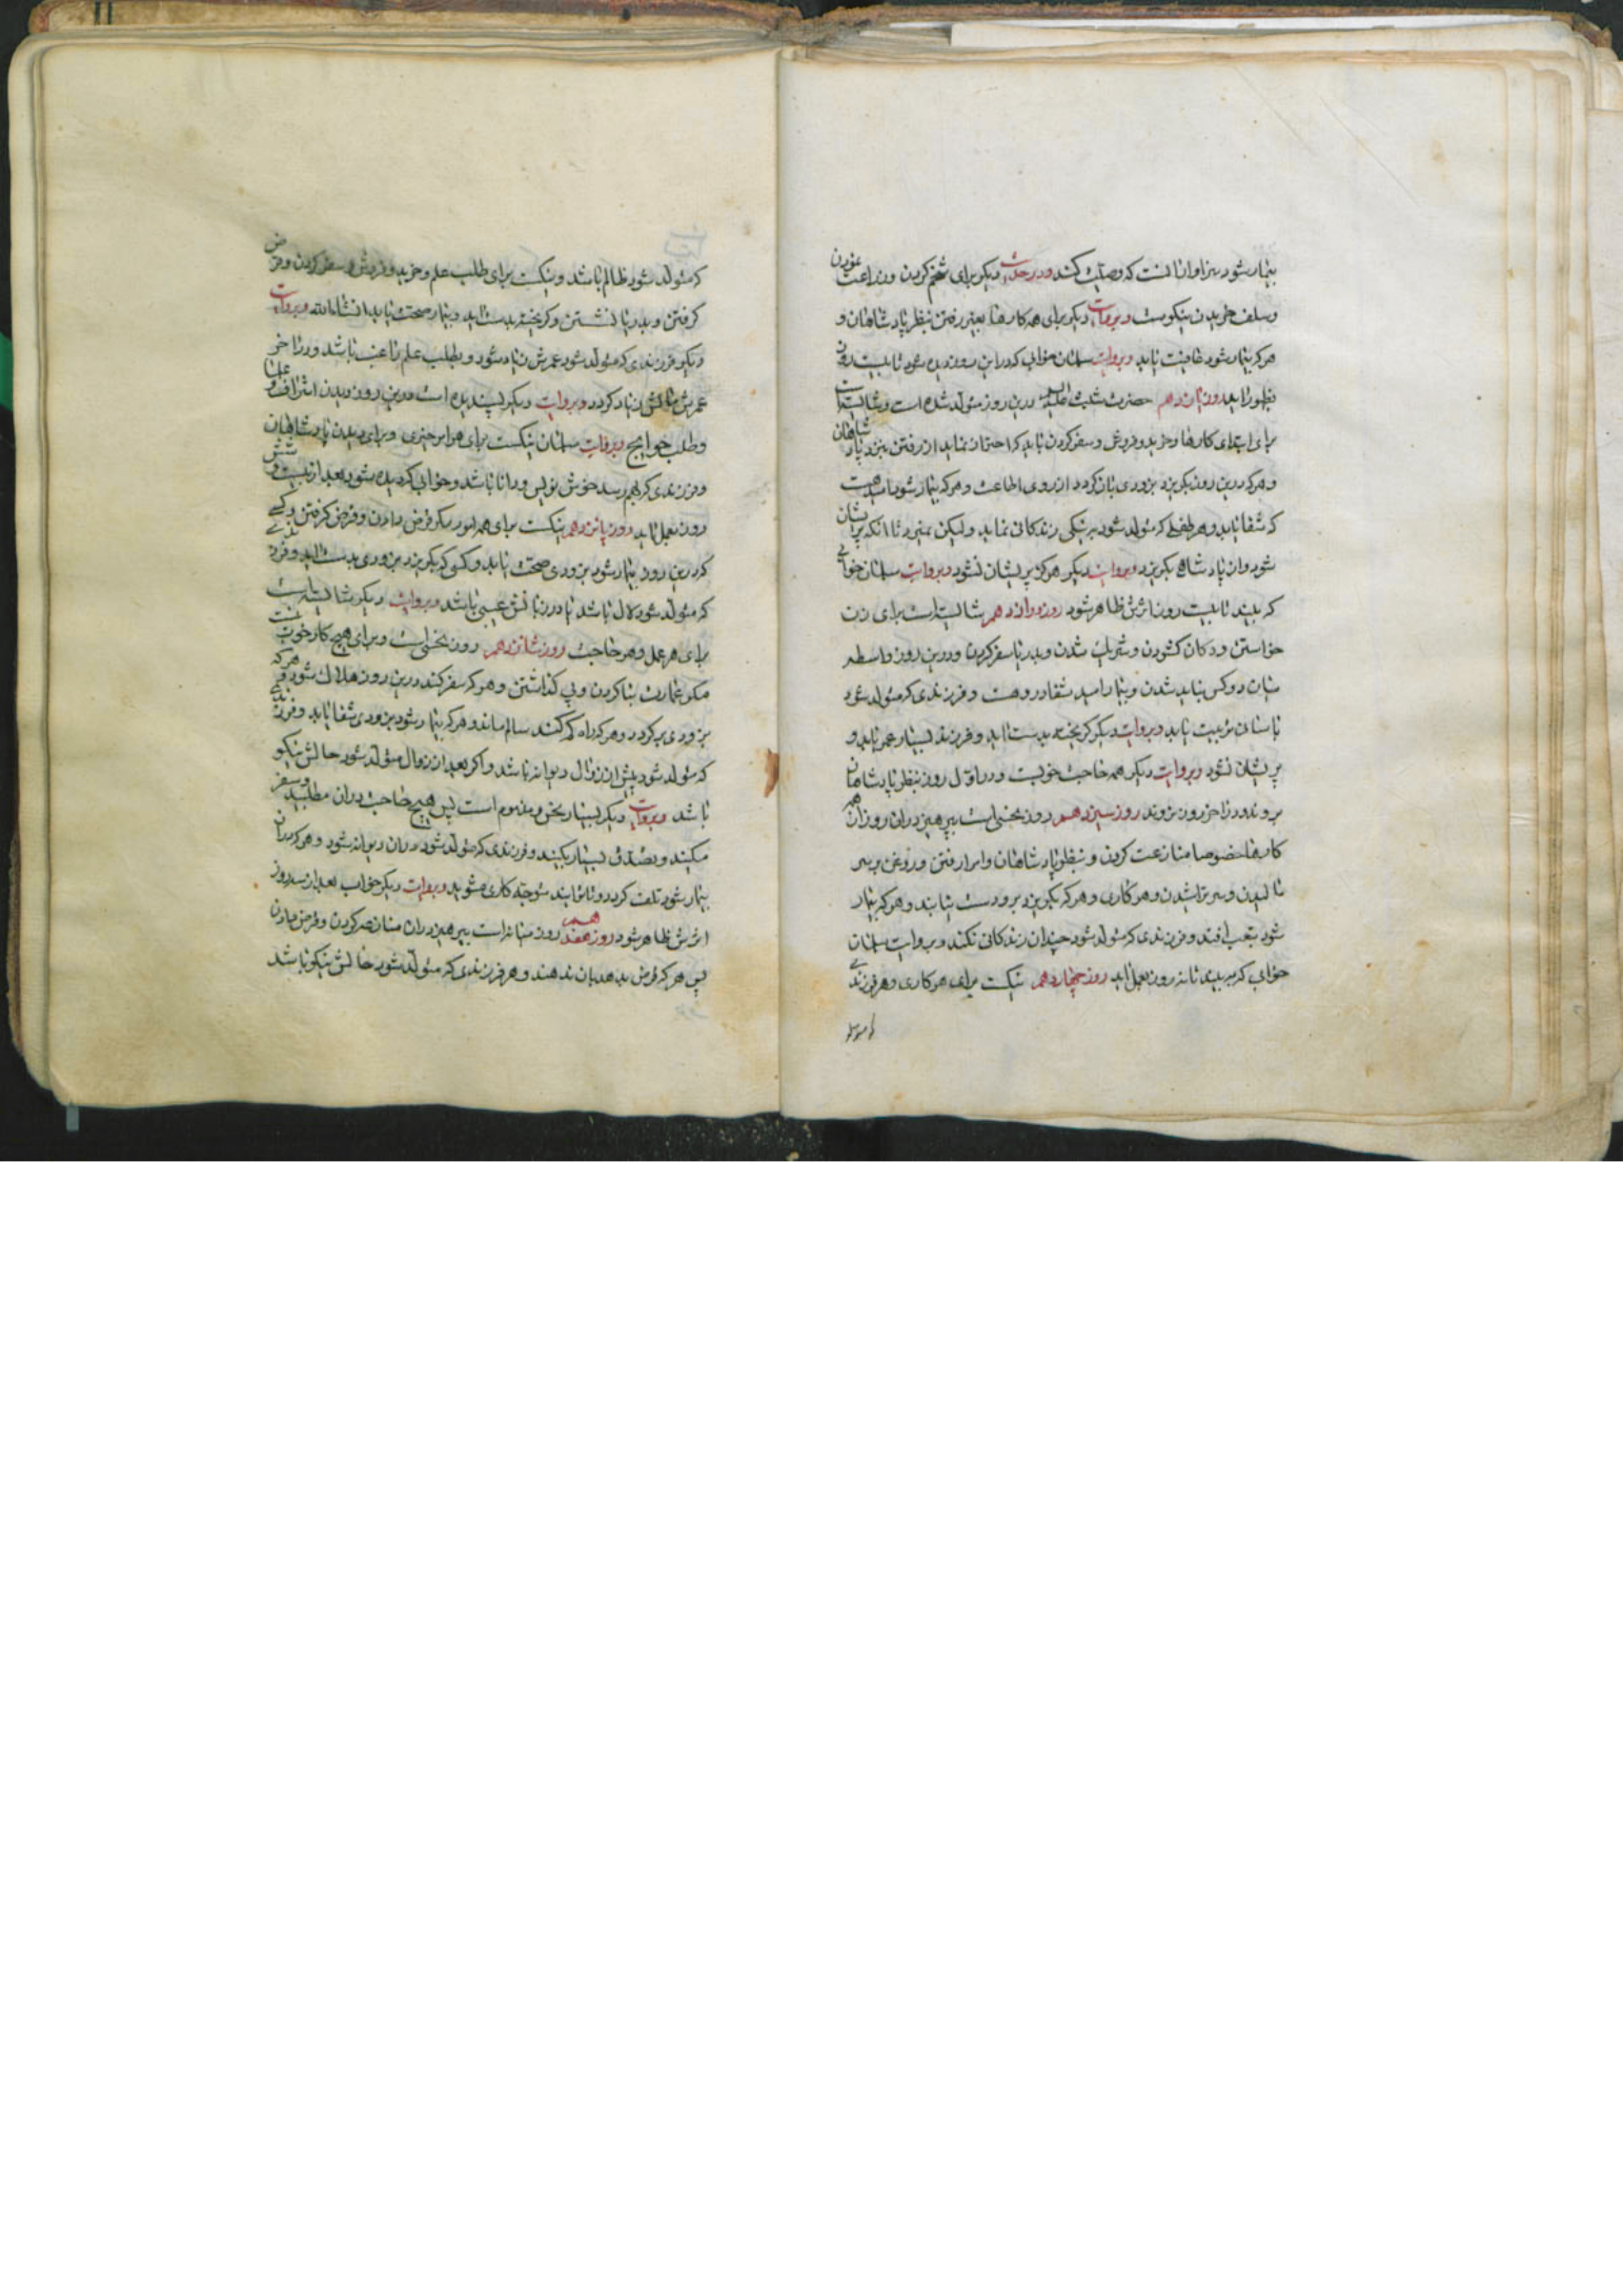 بیمار شود سزاوار آنست که وصیت کند و در حدیث دیکر برای تخم کردن و زراعت نمودن
و سلف خریدن نیکوست و بروایت دیکر برای همه کارها بغیر رفتن بنظر پادشاهان و
هر که بیمار شود عافیت یابد و بروایت سلمان خوابی که در این روز دیده شود تا بیست روز
بظهور اید روز یازدهم حضرت شیث علیه السلام درین روز متولد شده است و شایسته است
برای ابتدای کارها و خرید و فروش و سفر کردن باید که احتراز نماید از رفتن بنزد پادشاهان
و هر که درین روز بکریزد بزودی باز کردد از روی اطاعت و هر که بیمار شود امید هست
که شفا یابد و هر طفلی که متولد شود به نیکی زندکانی نماید و لیکن نمیرد تا انکه پریشان
شود و از پادشاهی بکریزد و بروایت دیکر هرکز پریشان نشود و بروایت سلمان خوابی
که بیند تا بیست روز اثرش ظاهر شود روز دوازدهم شایسته است برای زن
خواستن و دکان کشودن و شریک شدن و بدریا سفر کردن و درین روز واسطه
میان دو کس نباید شدن و بیمار را امید شفا درو هست و فرزندی که متولد شود
باسانی تربیت یابد و بروایت دیکر کریخته بدست اید و فرزند بسیار عمر یابد و
پریشان نشود و بروایت دیکر همه حاجت خوبست و در اول روز بنظر پادشاهان
بروند و در اخر روز نروند روز سیزدهم روز نحسی است بپرهیز در ان روز از همه
کارها خصوصا منازعت کردن و بنظر پادشاهان و امرا رفتن و روغن بر سر
مالیدن و سر تراشیدن و هر کاری و هر که بکریزد بزود دست نیابند و هر که بیمار
شود بتعب افتد و فرزندی که متولد شود چندان زندکانی نکند و بروایت سلمان
خوابی که به بیند تا نه روز بعمل اید روز چهاردهم نیکست برای هر کاری و هر فرزندی
که متولد
که متولد شود ظالم باشد و نیکست برای طلب علم و خرید و فروش و سفر کردن و قرض
کرفتن و بدریا نشستن و کریخته بدست اید و بیمار صحت یابد انشاءالله و بروایت
دیکر فرزندی که متولد شود عمرش زیاد شود و بطلب علم راغب باشد و در اخر
عمرش مالش زیاد کردد و بروایت دیکر پسندیده است درین روز دیدن اشراف و علما
و طلب حوایج و بروایت سلمان نیکست برای هر امر خیری و برای دیدن پادشاهان
و فرزندی که بهم رسد خوش نویس و دانا باشد و خوابی که دیده شود بعد از بیست و شش
روز بعمل اید روز پانزدهم نیکست برای همه امور مکر قرض دادن و قرض کرفتن و کسی
که درین روز بیمار شود بزودی صحت یابد و کسی که بکریزد بزودی بدست اید و فرزندی
که متولد شود لال باشد یا در زبانش عیبی باشد و بروایت دیکر شایسته است
برای هر عمل و هر حاجت روز شانزدهم روز نحسی است و برای هیچ کار خوب نیست
مکر عمارت بنا کردن و پی کذاشتن و هر که سفر کند درین روز هلاک شود و هر که
بزودی بر کردد و هر که راه کم کند سالم ماند و هر که بیمار شود بزودی شفا یابد و فرزندی
که متولد شود پیش از زوال دیوانه باشد و اکر بعد از زوال متولد شود حالش نیکو
باشد و بروایت دیکر بسیار نحس و مذموم است پس هیچ حاجت در ان مطلبید و سفر
مکنید و تصدق بسیار بکنید و فرزندی که متولد شود در ان دیوانه شود و هر که در ان
بیمار شود تلف کردد و تا توانید متوجه کاری مشوید و بروایت دیکر خواب بعد از سه روز
اثرش ظاهر شود روز هفدهم روز میانه است بپرهیز در ان از منازعه کردن و قرض دادن
پس هر که قرض بدهد بان ندهند و هر فرزندی که متولد شود حالش نیکو باشد